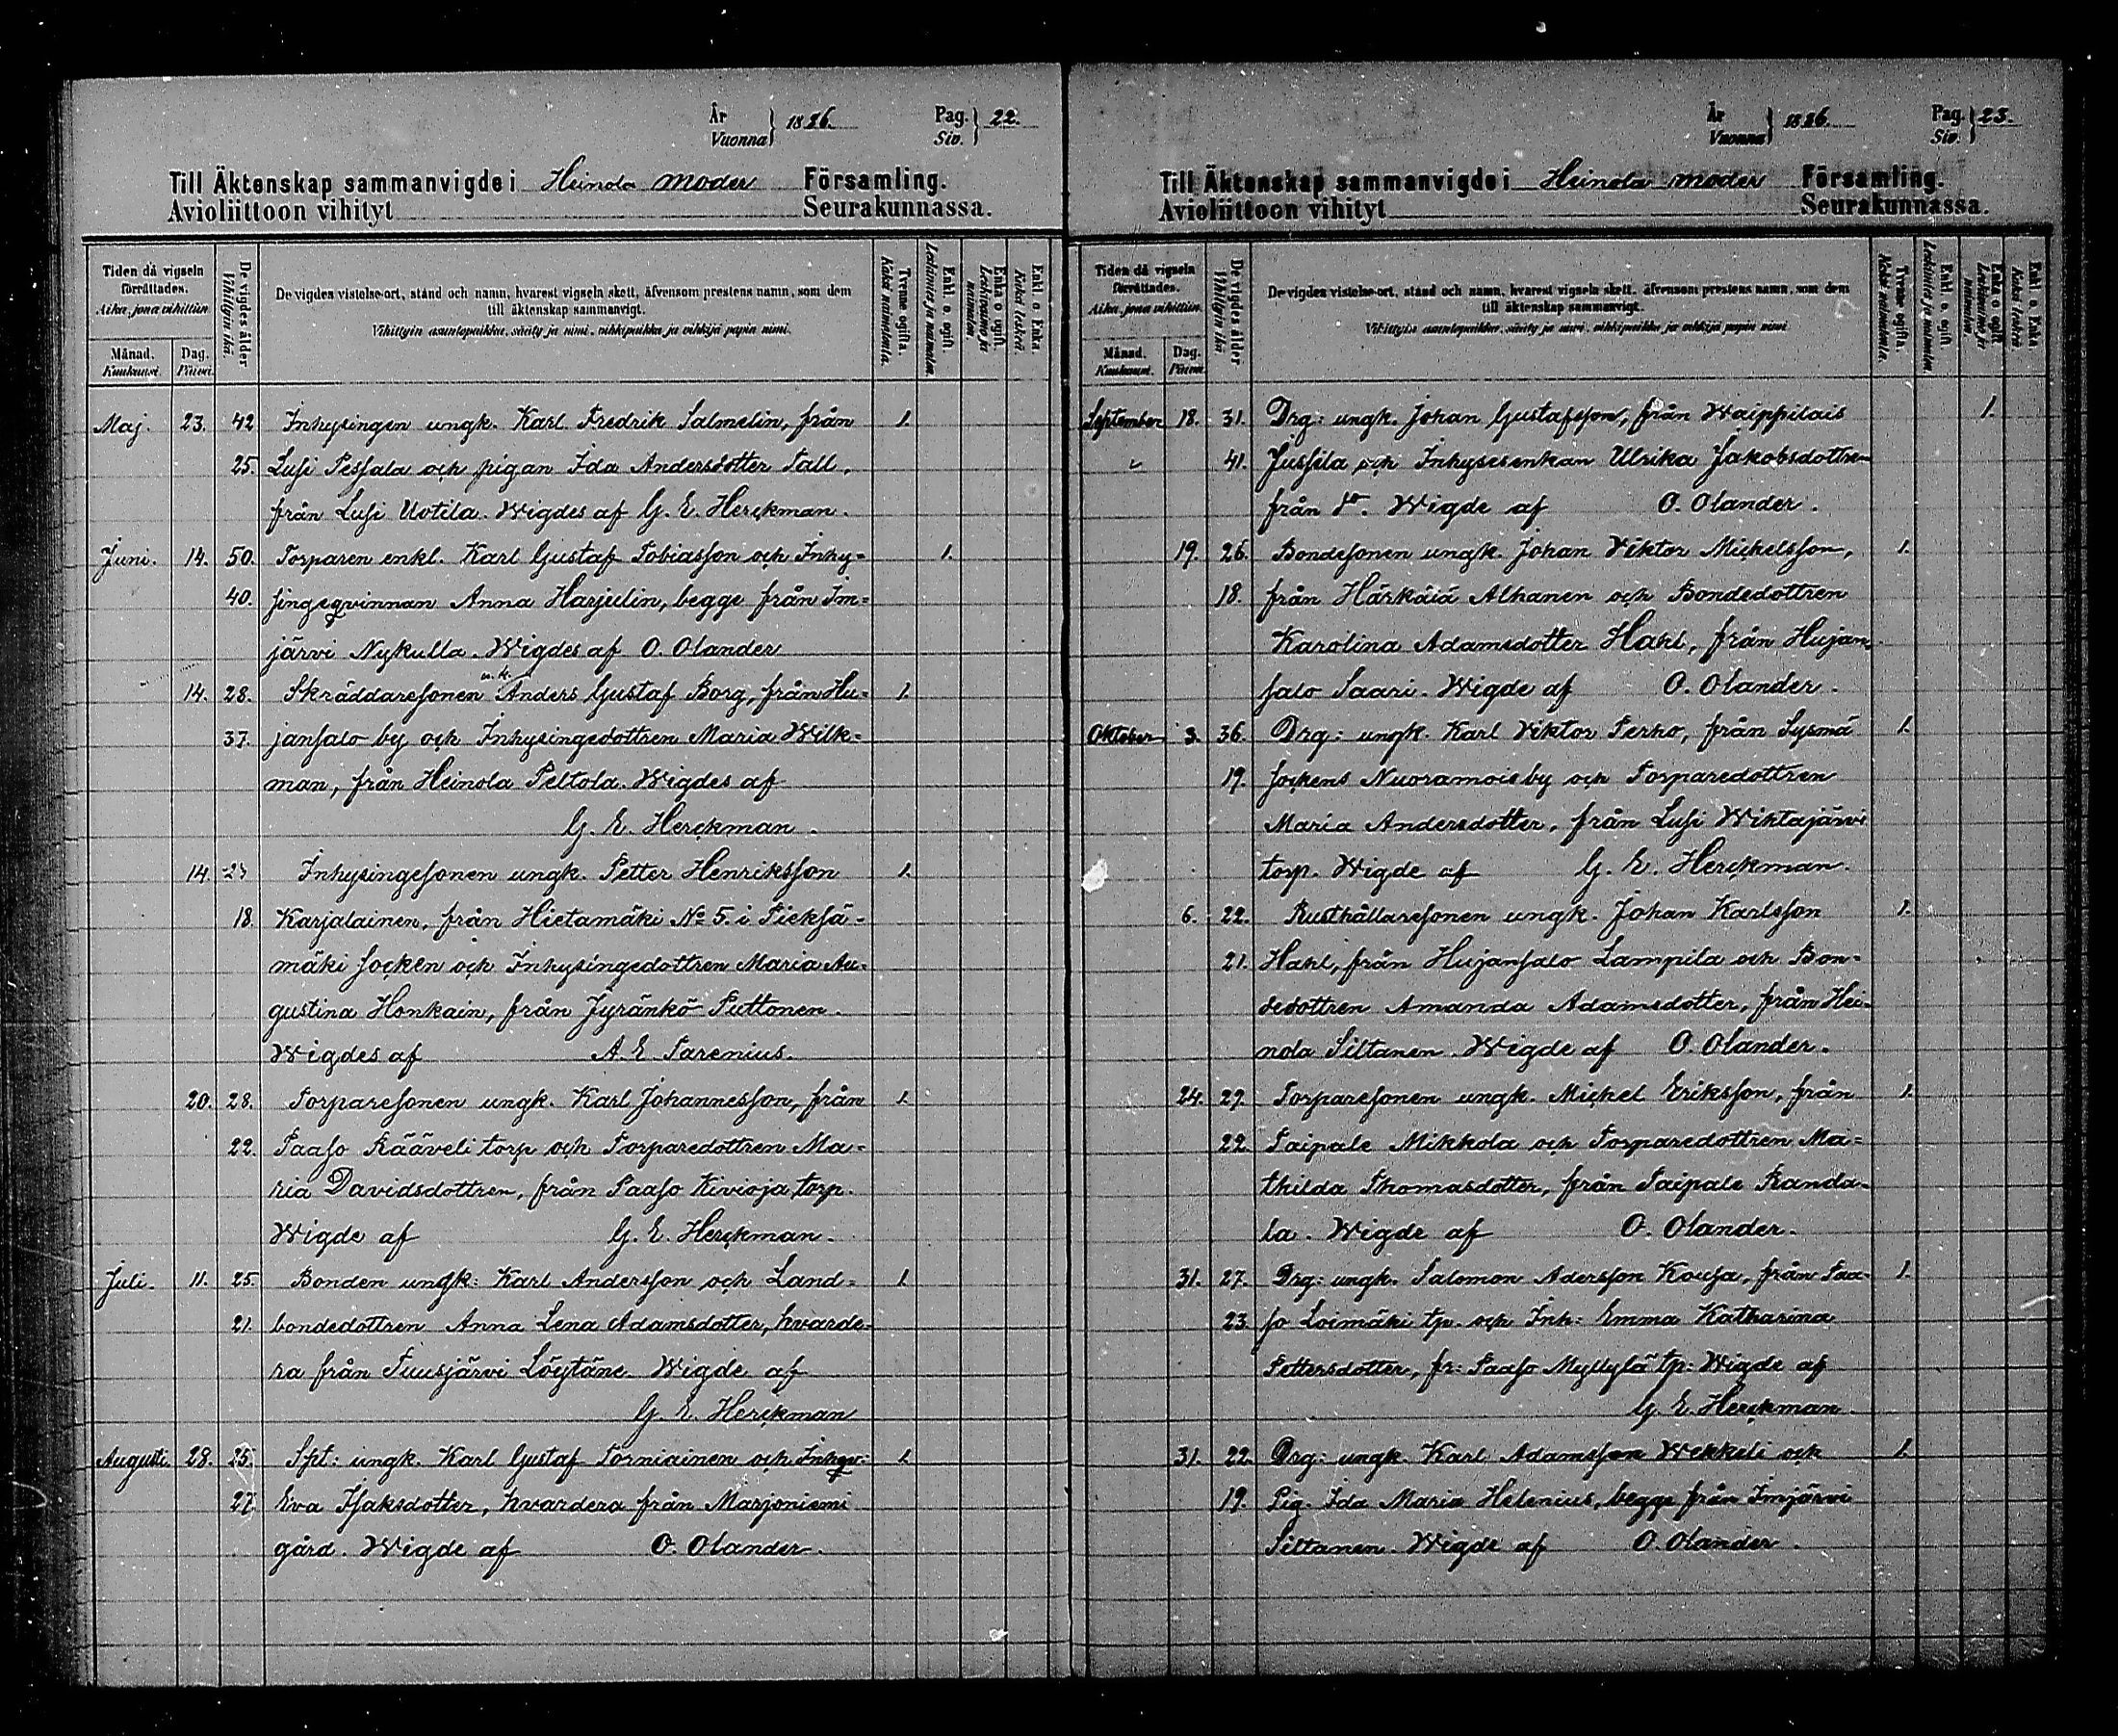 År
Vuonna } 1886.
Pag.
Siv. } 22.
Till Äktenskap sammanvigde i Heinola moder Församling.
Avioliittoon vihityt Seurakunnassa.
Tiden då vigseln förrättades.
Aika, jona vihittiin
Månad.
Kuukausi.
Dag.
Päivä.
De vigdes ålder
Vihittyin ikä.
De vigdes vistelse-ort, stånd och namn, hvarest vigseln skett, äfvensom prestens namn, som dem
till äktenskap sammanvigt.
Vihittyin asuntopaikka, sääty ja nimi, vihkipaikka ja vihkijä papin nimi.
Tvenne ogifta.
Kaksi naimatonta.
Enkl. o. ogift.
Leskimies ja naimaton.
Enka o ogift.
Leskivaimo ja naimaton.
Enkl o. Enka.
Kaksi leskeä.
Maj. 23. 42 Inhysingen ungk. Karl Fredrik Salmelin, från 1.
25. Lusi Pessala och pigan Ida Andersdotter Tall,
från Lusi Uotila. Wigdes af G. E. Herckman.
Juni. 14. 50. Torparen enkl. Karl Gustaf Tobiasson och Inhy= 1.
40. singeqvinnan Anna Harjulin, begge från Im=
järvi Nykulla. Wigdes af O. Olander
14. 28. Skräddaresonen u.k. Anders Gustaf Borg, från Hu= 1
37. jansalo by och Inhysingedottren Maria Wilk=
man, från Heinola Peltola. Wigdes af
G. E. Herckman.
14. 23 Inhysingesonen ungk. Petter Henriksson 1.
18. Karjalainen, från Hietamäki No 5. i Pieksä=
mäki socken och Inhysingedottren Maria Au=
gustina Honkain, från Jyränkö Puttonen.
Wigdes af A. E. Parenius.
20. 28. Torparesonen ungk. Karl Johannesson, från 1
22. Paaso Rääveli torp och Torparedottren Ma=
ria Davidsdottren, från Paaso Kivioja torp.
Wigde af G. E. Herckman.
Juli. 11. 25. Bonden ungk: Karl Andersson och Land= 1
21. bondedottren Anna Lena Adamsdotter, hvarde=
ra från Tuusjärvi Löytäne. Wigde af
G. E. Herckman
Augusti 28. 25. Spt: ungk. Karl Gustaf Torniainen och Inhqv: 1
27. Eva Isaksdotter, hvardera från Marjoniemi
gård. Wigde af O. Olander.
År
Vuonna } 1886.
Pag.
Siv. } 23.
Till Äktenskap sammanvigde i Heinola moder Församling.
Avioliittoon vihityt Seurakunnassa.
Tiden då vigseln förrättades.
Aika, jona vihittiin.
Månad.
Kuukausi.
Dag.
Päivä.
De vigdes ålder
Vihittyin ikä
De vigdes vistelse-ort, stånd och namn, hvarest vigseln skett, äfvensom prestens namn, som dem
till äktenskap sammanvigt.
Vihittyin asuntopaikka, sääty ja nimi, vihkipaikka ja vihkijä papin nimi
Tvenne ogifta.
Kaksi naimatonta.
Enkl. o. ogift
Leskimies ja naimaton
Enka o ogift
Leskivaimo ja naimaton.
Enkl o. Enka
Kaksi leskeä.
September 18. 31. Drg: ungk. Johan Gustafsson, från Waippilais 1.
41. Jussila och Inhysesenkan Ulrika Jakobsdotter
från do. Wigde af O. Olander.
19. 26. Bondesonen ungk. Johan Viktor Mickelsson, 1.
18. från Härkäiä Alhanen och Bondedottren
Karolina Adamsdotter Hahl, från Hujan=
salo Saari. Wigde af O. Olander.
Oktober 3. 36. Drg: ungk. Karl Viktor Perho, från Sysmä 1.
19. sockens Nuoramois by och Torparedottren
Maria Andersdotter, från Lusi Wiktajärvi
torp. Wigde af G. E. Herckman.
6. 22. Rusthållaresonen ungk. Johan Karlsson 1.
21. Hahl, från Hujansalo Lampila och Bon=
dedottren Amanda Adamsdotter, från Hei=
nola Siltanen. Wigde af O. Olander.
24. 29. Torparesonen ungk. Mickel Eriksson, från 1.
22. Taipale Mikkola och Torparedottren Ma=
thilda Thomasdotter, från Taipale Randa=
la. Wigde af O. Olander.
31. 27. Drg: ungk. Salomon Adersson Kousa, från Paa= 1.
23 so Loimäki tp. och Inh: Emma Katharina
Pettersdotter, fr: Paaso Myllylä tp: Wigde af
G. E. Herckman
31. 22. Drg: ungk. Karl Adamsson Wekkeli och 1.
19. Pig. Ida Maria Helenius, begge från Imjärvi
Siltanen. Wigde af O. Olander.